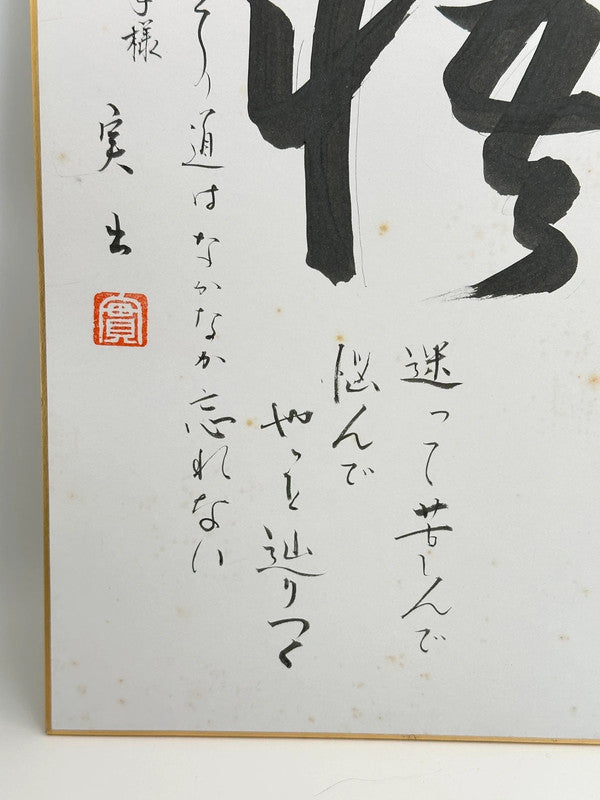 迷って苦しんで
悩んで
やっと辿りつく
り道はなかなか忘れない
様
実出
實